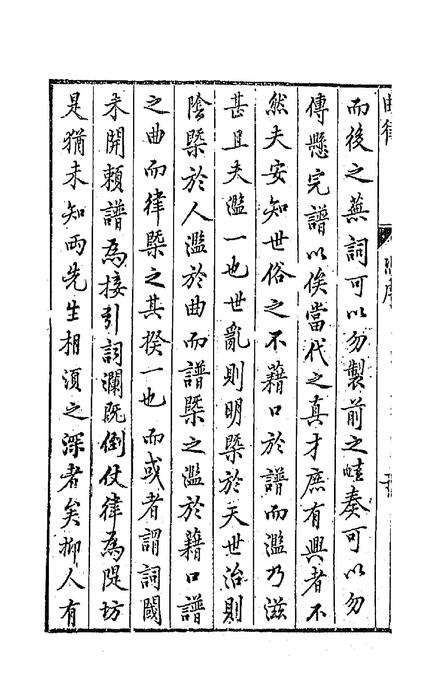 曲律
而後之蕪詞可以勿製前之哇奏可以勿
傳懸完譜以俟當代之真才庶有興者不
然夫安知世俗之不藉口於譜而濫乃滋
甚且夫濫一也世亂則明槩於天世治則
陰槩於人濫於曲而譜槩之濫於藉口譜
之曲而律槩之其揆一也而或者謂詞閾
未開頼譜為接引詞瀾既倒仗律為隄坊
是猶未知両先生相須之深者矣抑人有